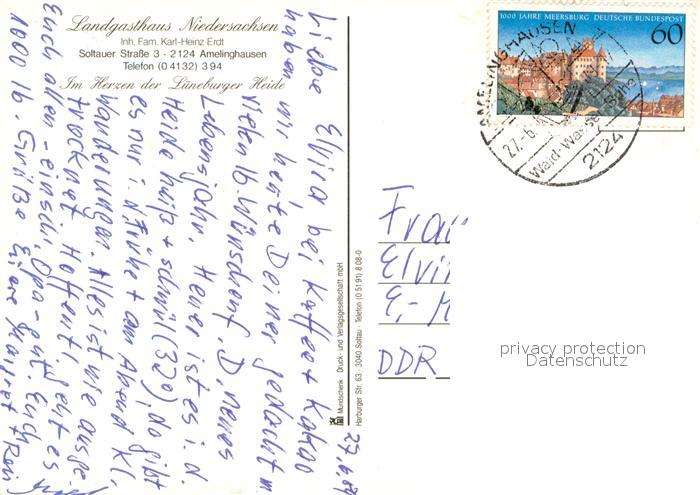 Landgasthaus Niedersachsen
Inh. Fam. Karl-Heinz Erdt
Soltauer Straße 3 · 2124 Amelinghausen
Telefon (0 41 32) 3 94
Im Herzen der Lüneburger Heide
1000 JAHRE MEERSBURG DEUTSCHE BUNDESPOST
60
AMELINGHAUSEN
27.-6.
Wald-Wasser-
2124
27.6.89
Liebe Elvira, bei Kaffee + Kakao
haben wir heute Deiner gedacht m.
vielen lb. Wünschen f. D. neues
Lebensjahr. Heuer ist es i. d.
Heide heiß + schwül (32°), da gibt
es nur i. d. Frühe + am Abend kl.
Wanderungen. Alles ist wie ausge-
trocknet. Hoffentl. geht es
Euch allen - einschl. Opa - gut. Euch
1000 lb. Grüße Eure
Mundschenk Druck- und Verlagsgesellschaft mbH
Harburger Str. 63 · 3040 Soltau · Telefon (0 51 91) 8 08-0
Frau
Elvi
E.-
DDR
privacy protection
Datenschutz